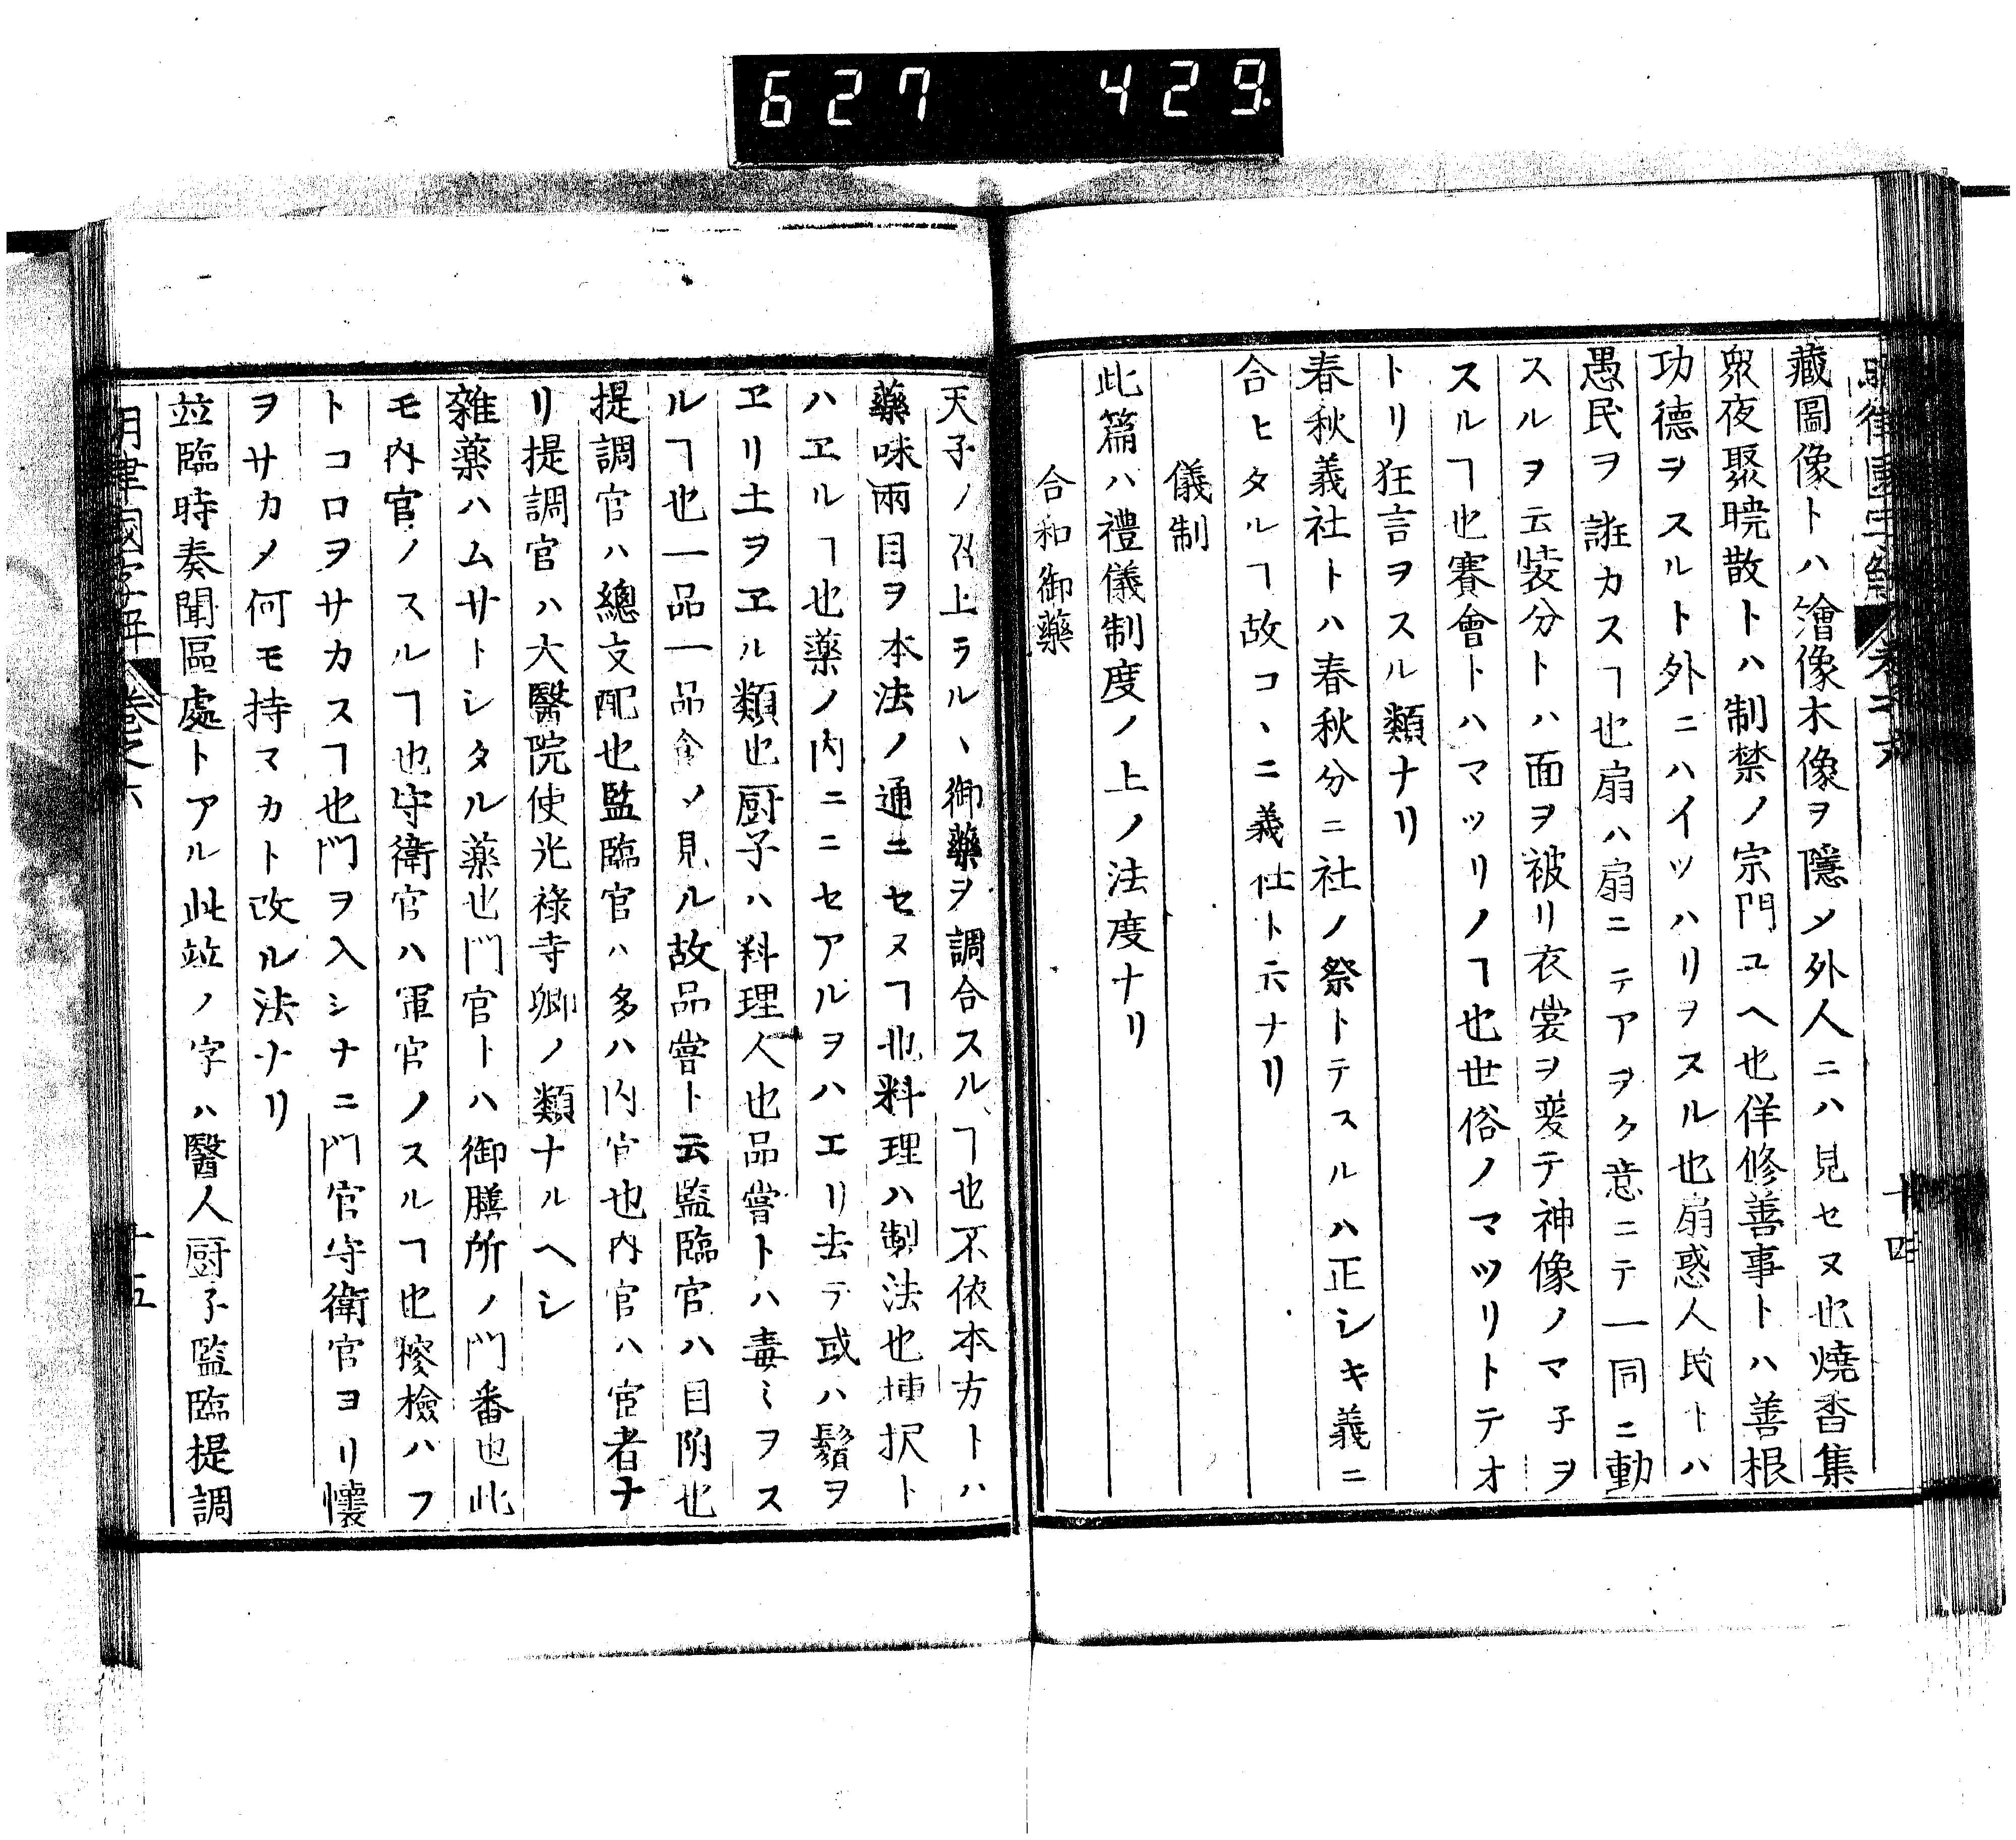 627 429
藏圖像トハ繪像木像ヲ隱〆外人ニハ見セヌ也燒香集
衆夜聚曉散トハ制禁ノ宗門ユヘ也佯修善事トハ善根
功德ヲスルト外ニハイツハリヲスル也扇惑人民トハ
愚民ヲ誑カスヿ也扇ハ扇ニテアヲク意ニテ一同ニ動
スルヲ云裝分トハ面ヲ被リ衣裳ヲ変テ神像ノマ子ヲ
スルヿ也賽會トハマツリノヿ也世俗ノマツリトテオ
トリ狂言ヲスル類ナリ
春秋義社トハ春秋分ニ社ノ祭トテスルハ正シキ義ニ
合ヒタルヿ故コヽニ義社ト云ナリ
儀制
此篇ハ禮儀制度ノ上ノ法度ナリ
合和御藥
天子ノ召上ラルヽ御藥ヲ調合スルヿ也不依本方トハ
藥味兩目ヲ本法ノ通ニセヌヿ也料理ハ製法也揀択ト
ハヱルヿ也薬ノ内ニニセアルヲハエリ去テ或ハ鬚ヲ
ヱリ土ヲヱル類也厨子ハ料理人也品嘗トハ毒ミヲス
ルヿ也一品一品食〆見ル故品嘗ト云監臨官ハ目附也
提調官ハ總支配也監臨官ハ多ハ内官也内官ハ宦者ナ
リ提調官ハ大醫院使光祿寺卿ノ類ナルヘシ
雜薬ハムサトシタル薬也門官トハ御膳所ノ門番也此
モ内官ノスルヿ也守衛官ハ軍官ノスルヿ也搜檢ハフ
トコロヲサカスヿ也門ヲ入シナニ門官守衛官ヨリ懷
ヲサカメ何モ持マカト改ル法ナリ
竝臨時奏聞區處トアル此竝ノ字ハ醫人厨子監臨提調
明律國字解 卷之六 十五